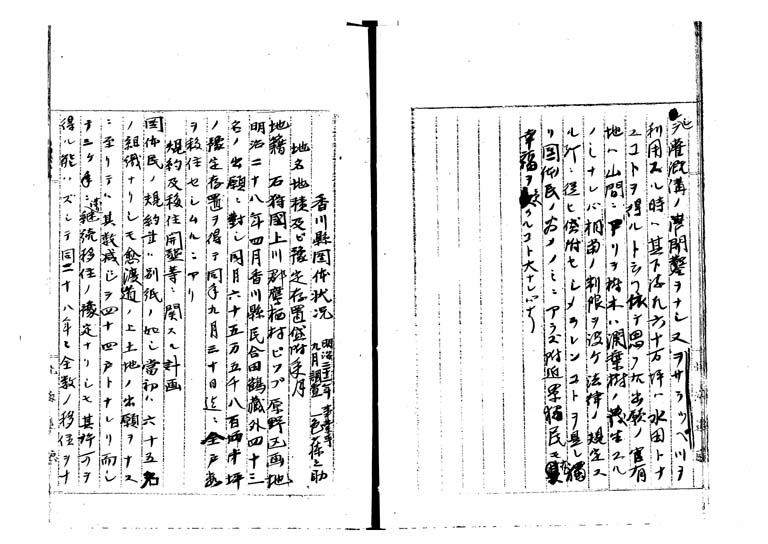 シ灌漑溝ノ開鑿ヲナシ又ヲサラッペツヲ
利用スル時ハ其下流九六十万坪ハ水田トナ
スコトヲ得ルト
地ハ山間ニアリテ樹木ハ濶葉樹ノ
ノミナレバ相当ノ制限ヲ設ケ法律ノ規定ス
ル所ニ従ヒ貸附セシメラレンコトヲ
リ団体民ノ為メノミニアラズ附近
幸福ヲ クルコト大ナレバナリ
香川縣団体状況
明治三十二年
九月調査
地名地積及ビ豫定存置貸附年月
地籍 石狩國上川郡鷹栖村ピップ原野区画地
明治二十八年四月香川縣民合田鶴藏外四十三
名ノ出願ニ對シ同月六十五万五千八百四十坪
ノ豫定存置ヲ得テ同年九月三十日迄ニ全戸数
ヲ移住セシムルニアリ
規約及移住開墾等ニ関スル計画
団体民ノ規約書ハ別紙ノ如シ當初ハ六十五名
ノ組織ナリシモ愈渡道ノ上土地ノ出願ヲナス
ニ至リテハ其数減ジテ四十四戸トナレリ而シ
テ三ケ年 継続移住ノ豫定ナリシモ其許可ヲ
得ル能ハズシテ同二十八年ニ全数ノ移住ヲナ